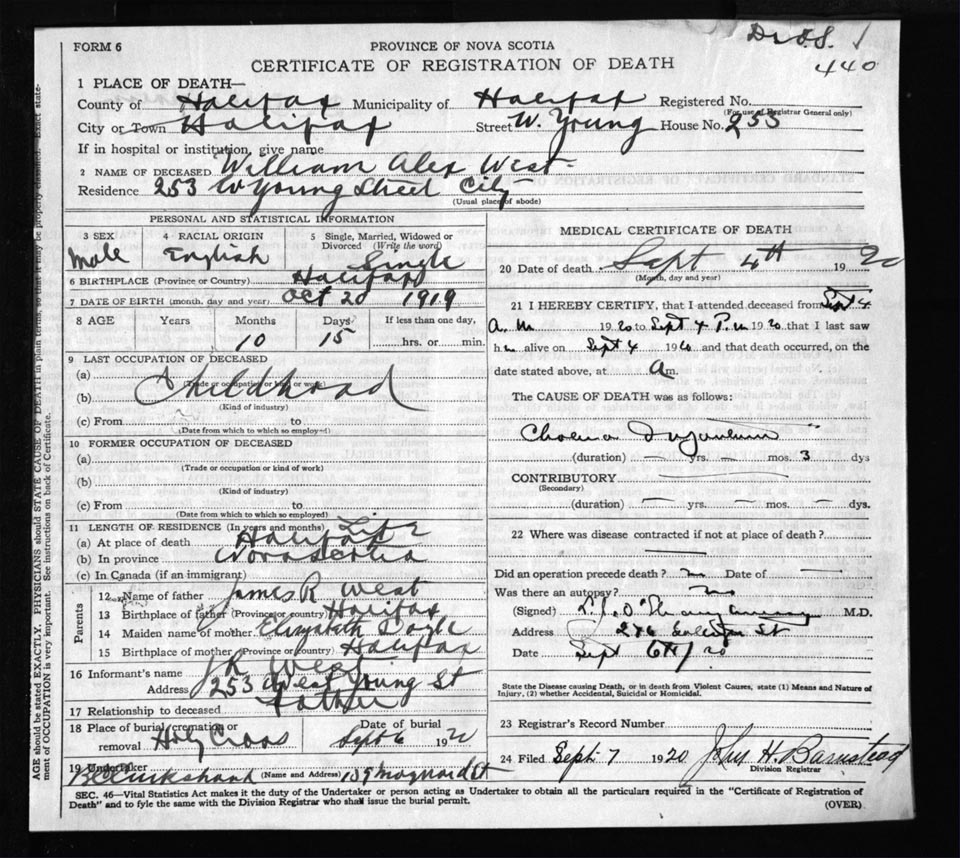 FORM 6
PROVINCE OF NOVA SCOTIA
CERTIFICATE OF REGISTRATION OF DEATH
440
1 PLACE OF DEATH—
County of Halifax Municipality of Halifax Registered No.
(For use of Registrar General only)
City or Town Halifax Street W. Young House No. 253
If in hospital or institution, give name
2 NAME OF DECEASED William Alex West
Residence 253 W Young Street City
(Usual place of abode)
PERSONAL AND STATISTICAL INFORMATION
3 SEX 4 RACIAL ORIGIN 5 Single, Married, Widowed or Divorced (Write the word)
Male English Single
6 BIRTHPLACE (Province or Country) Halifax
7 DATE OF BIRTH (month, day and year) Oct 20 1919
8 AGE Years Months Days If less than one day,
10 15 hrs. or min.
9 LAST OCCUPATION OF DECEASED
(a)
(Trade or occupation or kind of work)
(b) Childhood
(Kind of industry)
(c) From to
(Date from which to which so employed)
10 FORMER OCCUPATION OF DECEASED
(a)
(Trade or occupation or kind of work)
(b)
(Kind of industry)
(c) From to
(Date from which to which so employed)
11 LENGTH OF RESIDENCE (In years and months) Life
(a) At place of death Halifax
(b) In province Nova Scotia
(c) In Canada (if an immigrant)
Parents
12 Name of father James R West
13 Birthplace of father (Province or country) Halifax
14 Maiden name of mother Elizabeth Doyle
15 Birthplace of mother (Province or country) Halifax
16 Informant's name J R West
Address 253 West Young St
17 Relationship to deceased Father
18 Place of burial, cremation or removal Holy Cross Date of burial Sept 6 1920
19 Undertaker (Name and Address) 139 Maynard St
MEDICAL CERTIFICATE OF DEATH
20 Date of death Sept 4th 1920
(Month, day and year)
21 I HEREBY CERTIFY, that I attended deceased from Sept 4
A.M. 1920 to Sept 4 P.M 1920 that I last saw
him alive on Sept 4 1920 and that death occurred, on the
date stated above, at A m.
The CAUSE OF DEATH was as follows:
Cholera Infantum
(duration) — yrs. — mos. 3 dys
CONTRIBUTORY
(Secondary)
(duration) — yrs. — mos. — dys.
22 Where was disease contracted if not at place of death?
Did an operation precede death? no Date of —
Was there an autopsy? no
(Signed) M.D.
Address St
Date Sept 6th/20
State the Disease causing Death, or in death from Violent Causes, state (1) Means and Nature of
Injury, (2) whether Accidental, Suicidal or Homicidal.
23 Registrar's Record Number
24 Filed Sept 7 1920 John H. Barnstead
Division Registrar
SEC. 46—Vital Statistics Act makes it the duty of the Undertaker or person acting as Undertaker to obtain all the particulars required in the "Certificate of Registration of
Death" and to fyle the same with the Division Registrar who shall issue the burial permit.
(OVER)